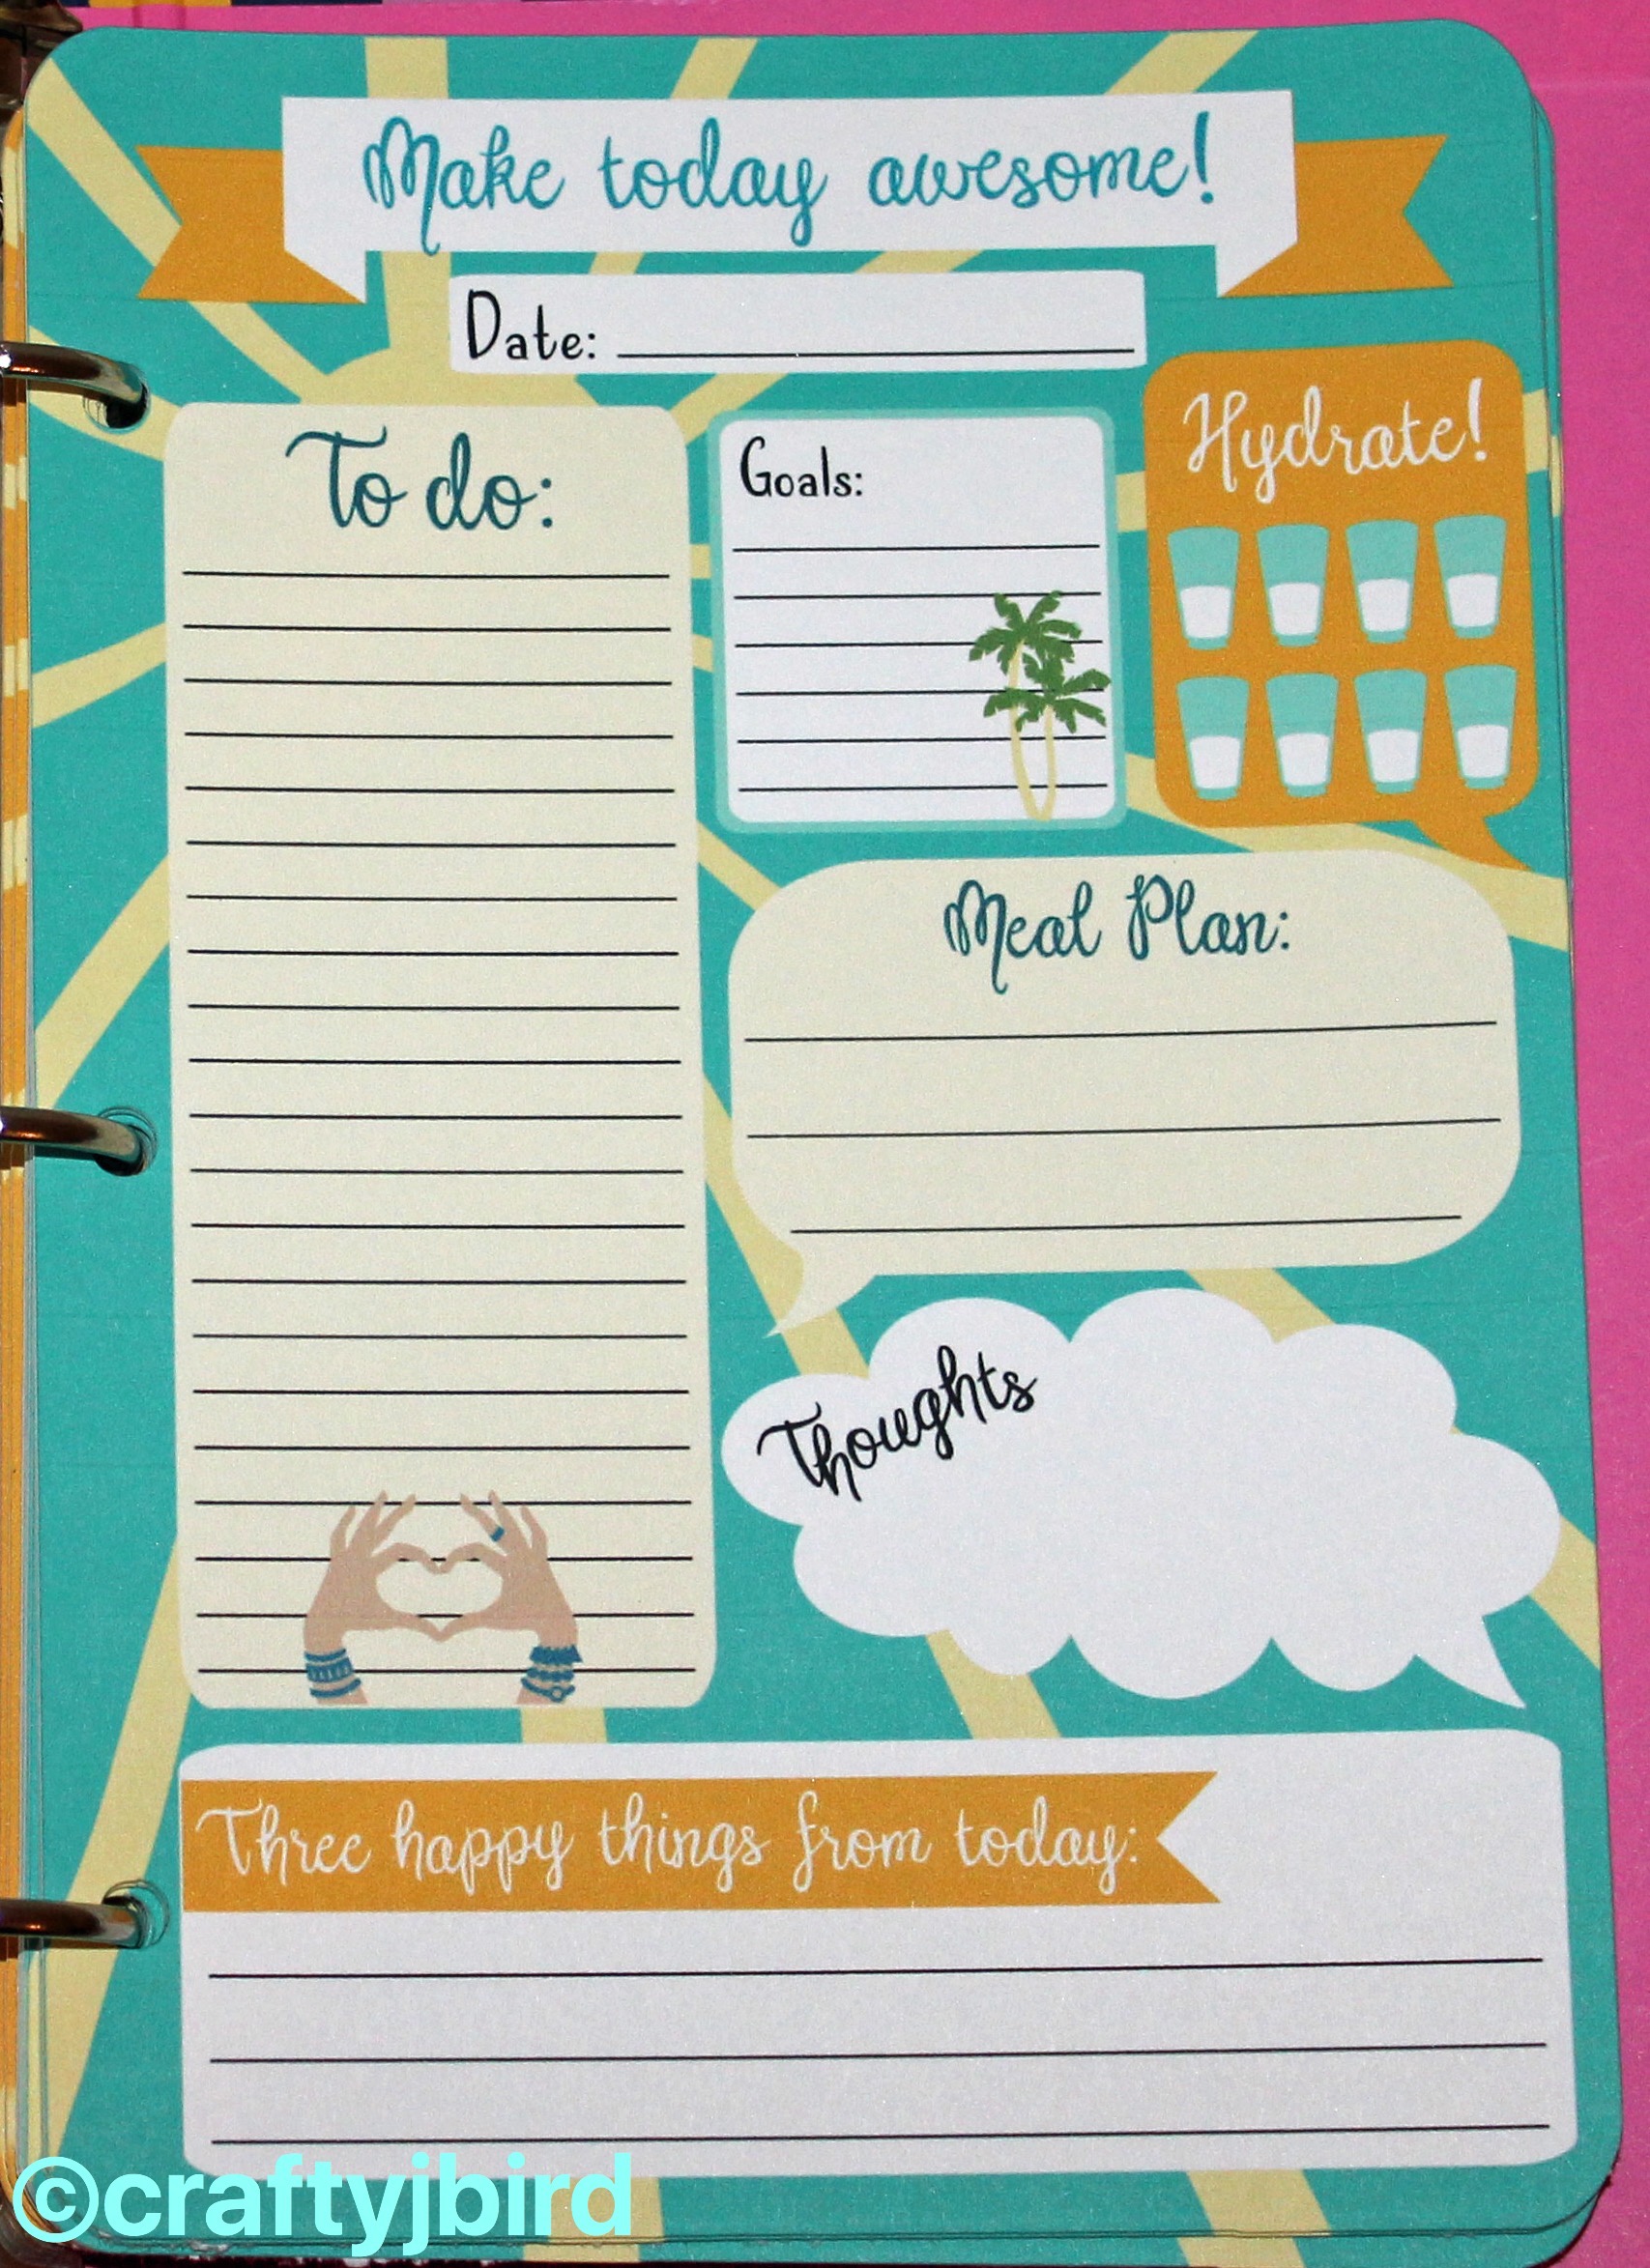 Make today awesome!
Date:
To do:
Goals:
Hydrate!
Meal Plan:
Thoughts
Three happy things from today:
©craftyjbird